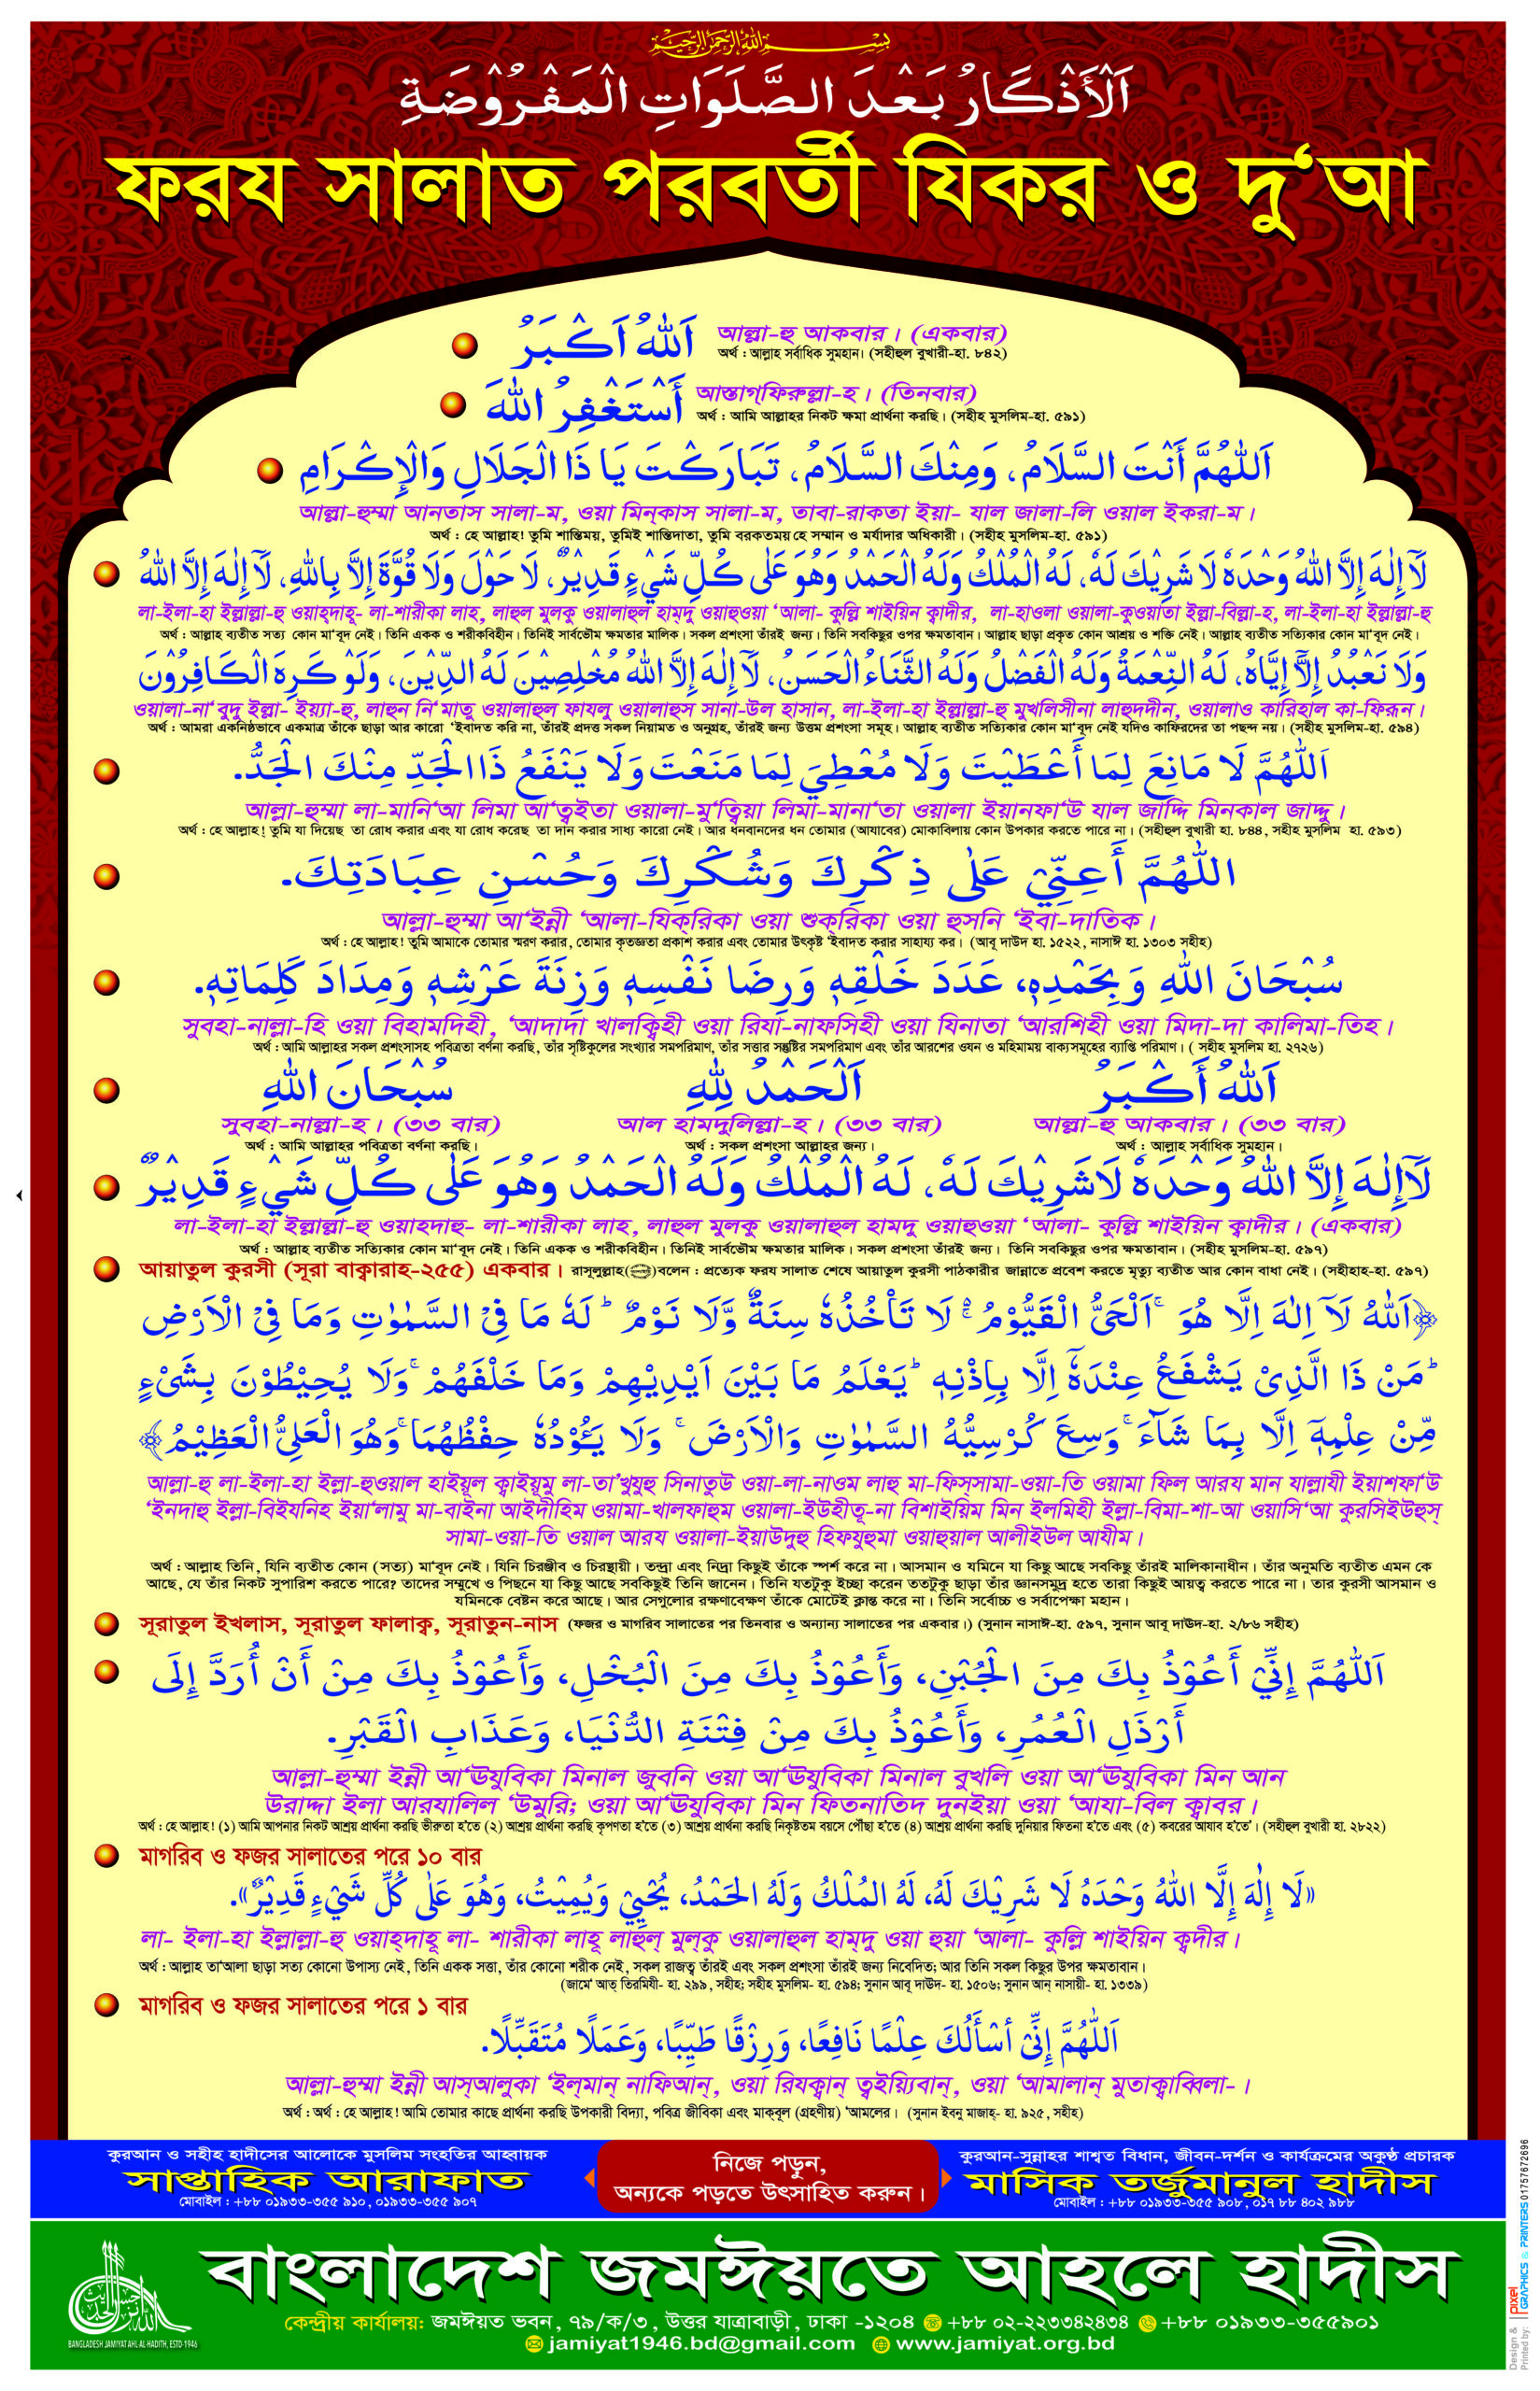 بِسْمِ اللهِ الرَّحْمٰنِ الرَّحِيْمِ
اَلْأَذْكَارُ بَعْدَ الصَّلَوَاتِ الْمَفْرُوضَةِ
ফরয সালাত পরবর্তী যিকর ও দু‘আ
اَللهُ اَكْبَرُ
আল্লা-হু আকবার। (একবার)
অর্থ : আল্লাহ সর্বাধিক সুমহান। (সহীহুল বুখারী-হা. ৮৪২)
أَسْتَغْفِرُ اللهَ
আস্তাগ্ফিরুল্লা-হ। (তিনবার)
অর্থ : আমি আল্লাহর নিকট ক্ষমা প্রার্থনা করছি। (সহীহ মুসলিম-হা. ৫৯১)
اَللّٰهُمَّ أَنْتَ السَّلَامُ، وَمِنْكَ السَّلَامُ، تَبَارَكْتَ يَا ذَا الْجَلَالِ وَالْإِكْرَامِ
আল্লা-হুম্মা আনতাস সালা-ম, ওয়া মিন্‌কাস সালা-ম, তাবা-রাকতা ইয়া- যাল জালা-লি ওয়াল ইকরা-ম।
অর্থ : হে আল্লাহ! তুমি শান্তিময়, তুমিই শান্তিদাতা, তুমি বরকতময় হে সম্মান ও মর্যাদার অধিকারী। (সহীহ মুসলিম-হা. ৫৯১)
لَآ إِلٰهَ إِلَّا اللهُ وَحْدَهٗ لَا شَرِيْكَ لَهٗ، لَهُ الْمُلْكُ وَلَهُ الْحَمْدُ وَهُوَ عَلٰى كُلِّ شَيْءٍ قَدِيْرٌ، لَا حَوْلَ وَلَا قُوَّةَ إِلَّا بِاللهِ، لَآ إِلٰهَ إِلَّا اللهُ
লা-ইলা-হা ইল্লাল্লা-হু ওয়াহ্‌দাহূ- লা-শারীকা লাহ, লাহুল মুলকু ওয়ালাহুল হাম্‌দু ওয়াহুওয়া ‘আলা- কুল্লি শাইয়িন ক্বাদীর, লা-হাওলা ওয়ালা-কুওয়াতা ইল্লা-বিল্লা-হ, লা-ইলা-হা ইল্লাল্লা-হু
অর্থ : আল্লাহ ব্যতীত সত্য কোন মা‘বূদ নেই। তিনি একক ও শরীকবিহীন। তিনিই সার্বভৌম ক্ষমতার মালিক। সকল প্রশংসা তাঁরই জন্য। তিনি সবকিছুর ওপর ক্ষমতাবান। আল্লাহ ছাড়া প্রকৃত কোন আশ্রয় ও শক্তি নেই। আল্লাহ ব্যতীত সত্যিকার কোন মা‘বূদ নেই।
وَلَا نَعْبُدُ إِلَّآ إِيَّاهُ، لَهُ النِّعْمَةُ وَلَهُ الْفَضْلُ وَلَهُ الثَّنَاءُ الْحَسَنُ، لَآ إِلٰهَ إِلَّا اللهُ مُخْلِصِيْنَ لَهُ الدِّيْنَ، وَلَوْ كَرِهَ الْكَافِرُوْنَ
ওয়ালা-না‘বুদু ইল্লা- ইয়্যা-হু, লাহুন নি‘মাতু ওয়ালাহুল ফাযলু ওয়ালাহুস সানা-উল হাসান, লা-ইলা-হা ইল্লাল্লা-হু মুখলিসীনা লাহুদদীন, ওয়ালাও কারিহাল কা-ফিরূন।
অর্থ : আমরা একনিষ্ঠভাবে একমাত্র তাঁকে ছাড়া আর কারো ‘ইবাদত করি না, তাঁরই প্রদত্ত সকল নিয়ামত ও অনুগ্রহ, তাঁরই জন্য উত্তম প্রশংসা সমূহ। আল্লাহ ব্যতীত সত্যিকার কোন মা‘বূদ নেই যদিও কাফিরদের তা পছন্দ নয়। (সহীহ মুসলিম-হা. ৫৯৪)
اَللّٰهُمَّ لَا مَانِعَ لِمَا أَعْطَيْتَ وَلَا مُعْطِيَ لِمَا مَنَعْتَ وَلَا يَنْفَعُ ذَا الْجَدِّ مِنْكَ الْجَدُّ.
আল্লা-হুম্মা লা-মানি‘আ লিমা আ‘ত্বইতা ওয়ালা-মু‘ত্বিয়া লিমা-মানা‘তা ওয়ালা ইয়ানফা‘উ যাল জাদ্দি মিনকাল জাদ্দু।
অর্থ : হে আল্লাহ! তুমি যা দিয়েছ তা রোধ করার এবং যা রোধ করেছ তা দান করার সাধ্য কারো নেই। আর ধনবানদের ধন তোমার (আযাবের) মোকাবিলায় কোন উপকার করতে পারে না। (সহীহুল বুখারী হা. ৮৪৪, সহীহ মুসলিম হা. ৫৯৩)
اللّٰهُمَّ أَعِنِّيْ عَلٰى ذِكْرِكَ وَشُكْرِكَ وَحُسْنِ عِبَادَتِكَ.
আল্লা-হুম্মা আ‘ইন্নী ‘আলা-যিক্‌রিকা ওয়া শুক্‌রিকা ওয়া হুসনি ‘ইবা-দাতিক।
অর্থ : হে আল্লাহ! তুমি আমাকে তোমার স্মরণ করার, তোমার কৃতজ্ঞতা প্রকাশ করার এবং তোমার উৎকৃষ্ট ‘ইবাদত করার সাহায্য কর। (আবূ দাউদ হা. ১৫২২, নাসাঈ হা. ১৩০৩ সহীহ)
سُبْحَانَ اللهِ وَبِحَمْدِهٖ، عَدَدَ خَلْقِهٖ وَرِضَا نَفْسِهٖ وَزِنَةَ عَرْشِهٖ وَمِدَادَ كَلِمَاتِهٖ.
সুবহা-নাল্লা-হি ওয়া বিহামদিহী, ‘আদাদা খালক্বিহী ওয়া রিযা-নাফসিহী ওয়া যিনাতা ‘আরশিহী ওয়া মিদা-দা কালিমা-তিহ।
অর্থ : আমি আল্লাহর সকল প্রশংসাসহ পবিত্রতা বর্ণনা করছি, তাঁর সৃষ্টিকুলের সংখ্যার সমপরিমাণ, তাঁর সত্তার সন্তুষ্টির সমপরিমাণ এবং তাঁর আরশের ওযন ও মহিমাময় বাক্যসমূহের ব্যাপ্তি পরিমাণ। ( সহীহ মুসলিম হা. ২৭২৬)
سُبْحَانَ اللهِ
সুবহা-নাল্লা-হ। (৩৩ বার)
অর্থ : আমি আল্লাহর পবিত্রতা বর্ণনা করছি।
اَلْحَمْدُ لِلّٰهِ
আল হামদুলিল্লা-হ। (৩৩ বার)
অর্থ : সকল প্রশংসা আল্লাহর জন্য।
اَللهُ أَكْبَرُ
আল্লা-হু আকবার। (৩৩ বার)
অর্থ : আল্লাহ সর্বাধিক সুমহান।
لَآ إِلٰهَ إِلَّا اللهُ وَحْدَهٗ لَا شَرِيْكَ لَهٗ، لَهُ الْمُلْكُ وَلَهُ الْحَمْدُ وَهُوَ عَلٰى كُلِّ شَيْءٍ قَدِيْرٌ
লা-ইলা-হা ইল্লাল্লা-হু ওয়াহদাহু- লা-শারীকা লাহ, লাহুল মুলকু ওয়ালাহুল হামদু ওয়াহুওয়া ‘আলা- কুল্লি শাইয়িন ক্বাদীর। (একবার)
অর্থ : আল্লাহ ব্যতীত সত্যিকার কোন মা‘বূদ নেই। তিনি একক ও শরীকবিহীন। তিনিই সার্বভৌম ক্ষমতার মালিক। সকল প্রশংসা তাঁরই জন্য। তিনি সবকিছুর ওপর ক্ষমতাবান। (সহীহ মুসলিম-হা. ৫৯৭)
আয়াতুল কুরসী (সূরা বাক্বারাহ-২৫৫) একবার। রাসূলুল্লাহ(ﷺ)বলেন : প্রত্যেক ফরয সালাত শেষে আয়াতুল কুরসী পাঠকারীর জান্নাতে প্রবেশ করতে মৃত্যু ব্যতীত আর কোন বাধা নেই। (সহীহাহ-হা. ৫৯৭)
﴿اَللهُ لَآ اِلٰهَ اِلَّا هُوَ ۚ اَلْحَيُّ الْقَيُّوْمُ ۚ لَا تَأْخُذُهٗ سِنَةٌ وَّلَا نَوْمٌ ؕ لَهٗ مَا فِي السَّمٰوٰتِ وَمَا فِي الْاَرْضِ
ؕ مَنْ ذَا الَّذِيْ يَشْفَعُ عِنْدَهٗٓ اِلَّا بِاِذْنِهٖ ؕ يَعْلَمُ مَا بَيْنَ اَيْدِيْهِمْ وَمَا خَلْفَهُمْ ۚ وَلَا يُحِيْطُوْنَ بِشَيْءٍ
مِّنْ عِلْمِهٖٓ اِلَّا بِمَا شَآءَ ۚ وَسِعَ كُرْسِيُّهُ السَّمٰوٰتِ وَالْاَرْضَ ۚ وَلَا يَـُٔوْدُهٗ حِفْظُهُمَا ۚ وَهُوَ الْعَلِيُّ الْعَظِيْمُ﴾
আল্লা-হু লা-ইলা-হা ইল্লা-হুওয়াল হাইয়ূল ক্বাইয়ূমু লা-তা’খুযুহু সিনাতুউ ওয়া-লা-নাওম লাহু মা-ফিস্‌সামা-ওয়া-তি ওয়ামা ফিল আরয মান যাল্লাযী ইয়াশফা‘উ
‘ইনদাহু ইল্লা-বিইযনিহ ইয়া‘লামু মা-বাইনা আইদীহিম ওয়ামা-খালফাহুম ওয়ালা-ইউহীতূ-না বিশাইয়িম মিন ইলমিহী ইল্লা-বিমা-শা-আ ওয়াসি‘আ কুরসিইউহুস্
সামা-ওয়া-তি ওয়াল আরয ওয়ালা-ইয়াউদুহু হিফযুহুমা ওয়াহুয়াল আলীইউল আযীম।
অর্থ : আল্লাহ তিনি, যিনি ব্যতীত কোন (সত্য) মা‘বূদ নেই। যিনি চিরঞ্জীব ও চিরস্থায়ী। তন্দ্রা এবং নিদ্রা কিছুই তাঁকে স্পর্শ করে না। আসমান ও যমিনে যা কিছু আছে সবকিছু তাঁরই মালিকানাধীন। তাঁর অনুমতি ব্যতীত এমন কে
আছে, যে তাঁর নিকট সুপারিশ করতে পারে? তাদের সম্মুখে ও পিছনে যা কিছু আছে সবকিছুই তিনি জানেন। তিনি যতটুকু ইচ্ছা করেন ততটুকু ছাড়া তাঁর জ্ঞানসমুদ্র হতে তারা কিছুই আয়ত্ব করতে পারে না। তার কুরসী আসমান ও
যমিনকে বেষ্টন করে আছে। আর সেগুলোর রক্ষণাবেক্ষণ তাঁকে মোটেই ক্লান্ত করে না। তিনি সর্বোচ্চ ও সর্বাপেক্ষা মহান।
সূরাতুল ইখলাস, সূরাতুল ফালাক্ব, সূরাতুন-নাস (ফজর ও মাগরিব সালাতের পর তিনবার ও অন্যান্য সালাতের পর একবার।) (সুনান নাসাঈ-হা. ৫৯৭, সুনান আবূ দাঊদ-হা. ২/৮৬ সহীহ)
اَللّٰهُمَّ إِنِّيْ أَعُوْذُ بِكَ مِنَ الْجُبْنِ، وَأَعُوْذُ بِكَ مِنَ الْبُخْلِ، وَأَعُوْذُ بِكَ مِنْ أَنْ أُرَدَّ إِلَى
أَرْذَلِ الْعُمُرِ، وَأَعُوْذُ بِكَ مِنْ فِتْنَةِ الدُّنْيَا، وَعَذَابِ الْقَبْرِ.
আল্লা-হুম্মা ইন্নী আ‘ঊযুবিকা মিনাল জুবনি ওয়া আ‘ঊযুবিকা মিনাল বুখলি ওয়া আ‘ঊযুবিকা মিন আন
উরাদ্দা ইলা আরযালিল ‘উমুরি; ওয়া আ‘ঊযুবিকা মিন ফিতনাতিদ দুনইয়া ওয়া ‘আযা-বিল ক্বাবর।
অর্থ : হে আল্লাহ! (১) আমি আপনার নিকট আশ্রয় প্রার্থনা করছি ভীরুতা হ’তে (২) আশ্রয় প্রার্থনা করছি কৃপণতা হ’তে (৩) আশ্রয় প্রার্থনা করছি নিকৃষ্টতম বয়সে পৌঁছা হ’তে (৪) আশ্রয় প্রার্থনা করছি দুনিয়ার ফিতনা হ’তে এবং (৫) কবরের আযাব হ’তে’। (সহীহুল বুখারী হা. ২৮২২)
মাগরিব ও ফজর সালাতের পরে ১০ বার
«لَا إِلٰهَ إِلَّا اللهُ وَحْدَهُ لَا شَرِيْكَ لَهُ، لَهُ المُلْكُ وَلَهُ الحَمْدُ، يُحْيِيْ وَيُمِيْتُ، وَهُوَ عَلٰى كُلِّ شَيْءٍ قَدِيْرٌ».
লা- ইলা-হা ইল্লাল্লা-হু ওয়াহ্‌দাহূ লা- শারীকা লাহূ লাহুল্ মুল্‌কু ওয়ালাহুল হাম্‌দু ওয়া হুয়া ‘আলা- কুল্লি শাইয়িন ক্বদীর।
অর্থ : আল্লাহ তা‘আলা ছাড়া সত্য কোনো উপাস্য নেই, তিনি একক সত্তা, তাঁর কোনো শরীক নেই, সকল রাজত্ব তাঁরই এবং সকল প্রশংসা তাঁরই জন্য নিবেদিত; আর তিনি সকল কিছুর উপর ক্ষমতাবান।
(জামে‘ আত্ তিরমিযী- হা. ২৯৯, সহীহ; সহীহ মুসলিম- হা. ৫৯৪; সুনান আবূ দাঊদ- হা. ১৫০৬; সুনান আন্ নাসায়ী- হা. ১৩৩৯)
মাগরিব ও ফজর সালাতের পরে ১ বার
اَللّٰهُمَّ إِنِّيْ أسْأَلُكَ عِلْمًا نَافِعًا، وَرِزْقًا طَيِّبًا، وَعَمَلًا مُتَقَبِّلًا.
আল্লা-হুম্মা ইন্নী আস্আলুকা ‘ইল্‌মান্ নাফিআন্, ওয়া রিযক্বান্ ত্বইয়্যিবান্, ওয়া ‘আমালান্ মুতাক্বাব্বিলা-।
অর্থ : অর্থ : হে আল্লাহ! আমি তোমার কাছে প্রার্থনা করছি উপকারী বিদ্যা, পবিত্র জীবিকা এবং মাক্‌বূল (গ্রহণীয়) ‘আমলের। (সুনান ইবনু মাজাহ্- হা. ৯২৫, সহীহ)
কুরআন ও সহীহ হাদীসের আলোকে মুসলিম সংহতির আহ্বায়ক
সাপ্তাহিক আরাফাত
মোবাইল : +৮৮ ০১৯৩৩-৩৫৫ ৯১০, ০১৯৩৩-৩৫৫ ৯০৭
নিজে পড়ুন,
অন্যকে পড়তে উৎসাহিত করুন।
কুরআন-সুন্নাহর শাশ্বত বিধান, জীবন-দর্শন ও কার্যক্রমের অকুণ্ঠ প্রচারক
মাসিক তর্জুমানুল হাদীস
মোবাইল : +৮৮ ০১৯৩৩-৩৫৫ ৯০৮, ০১৭ ৮৮ ৪০২ ৯৮৮
বাংলাদেশ জমঈয়তে আহলে হাদীস
কেন্দ্রীয় কার্যালয়: জমঈয়ত ভবন, ৭৯/ক/৩, উত্তর যাত্রাবাড়ী, ঢাকা -১২০৪ +৮৮ ০২-২২৩৩৪২৪৩৪ +৮৮ ০১৯৩৩-৩৫৫৯০১
jamiyat1946.bd@gmail.com www.jamiyat.org.bd
BANGLADESH JAMIYAT AHL-AL-HADITH, ESTD-1946
Design &
Printed by:
pixel
GRAPHICS & PRINTERS 01757672696